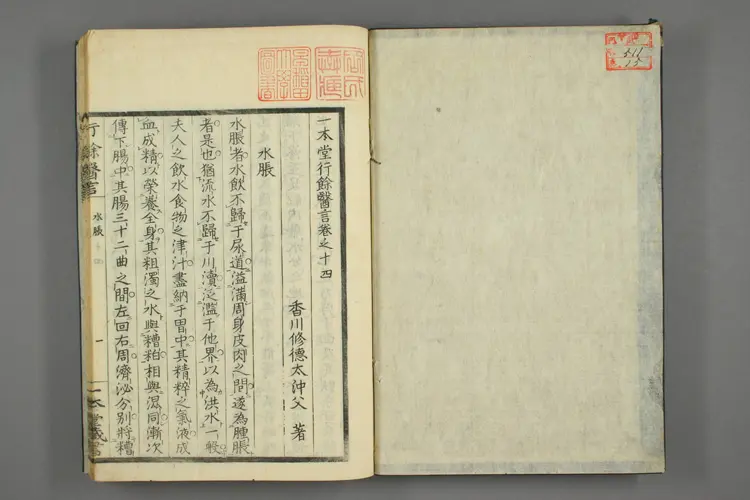 一本堂行餘醫言卷之十四
香川修德太沖父 著
水脹
水脹者水飲不歸于尿道溢滿周身皮肉之間遂為腫脹
者是也猶流水不歸于川瀆泛濫于他界以為洪水一般
夫人之飲水食物之津汁盡納于胃中其精粹之氣液成
血成精以榮養全身其粗濁之水與糟粕相與混同漸次
傳下腸中其腸三十二曲之間左回右周濟泌分別將糟
行餘醫言
水脹
一
511
15